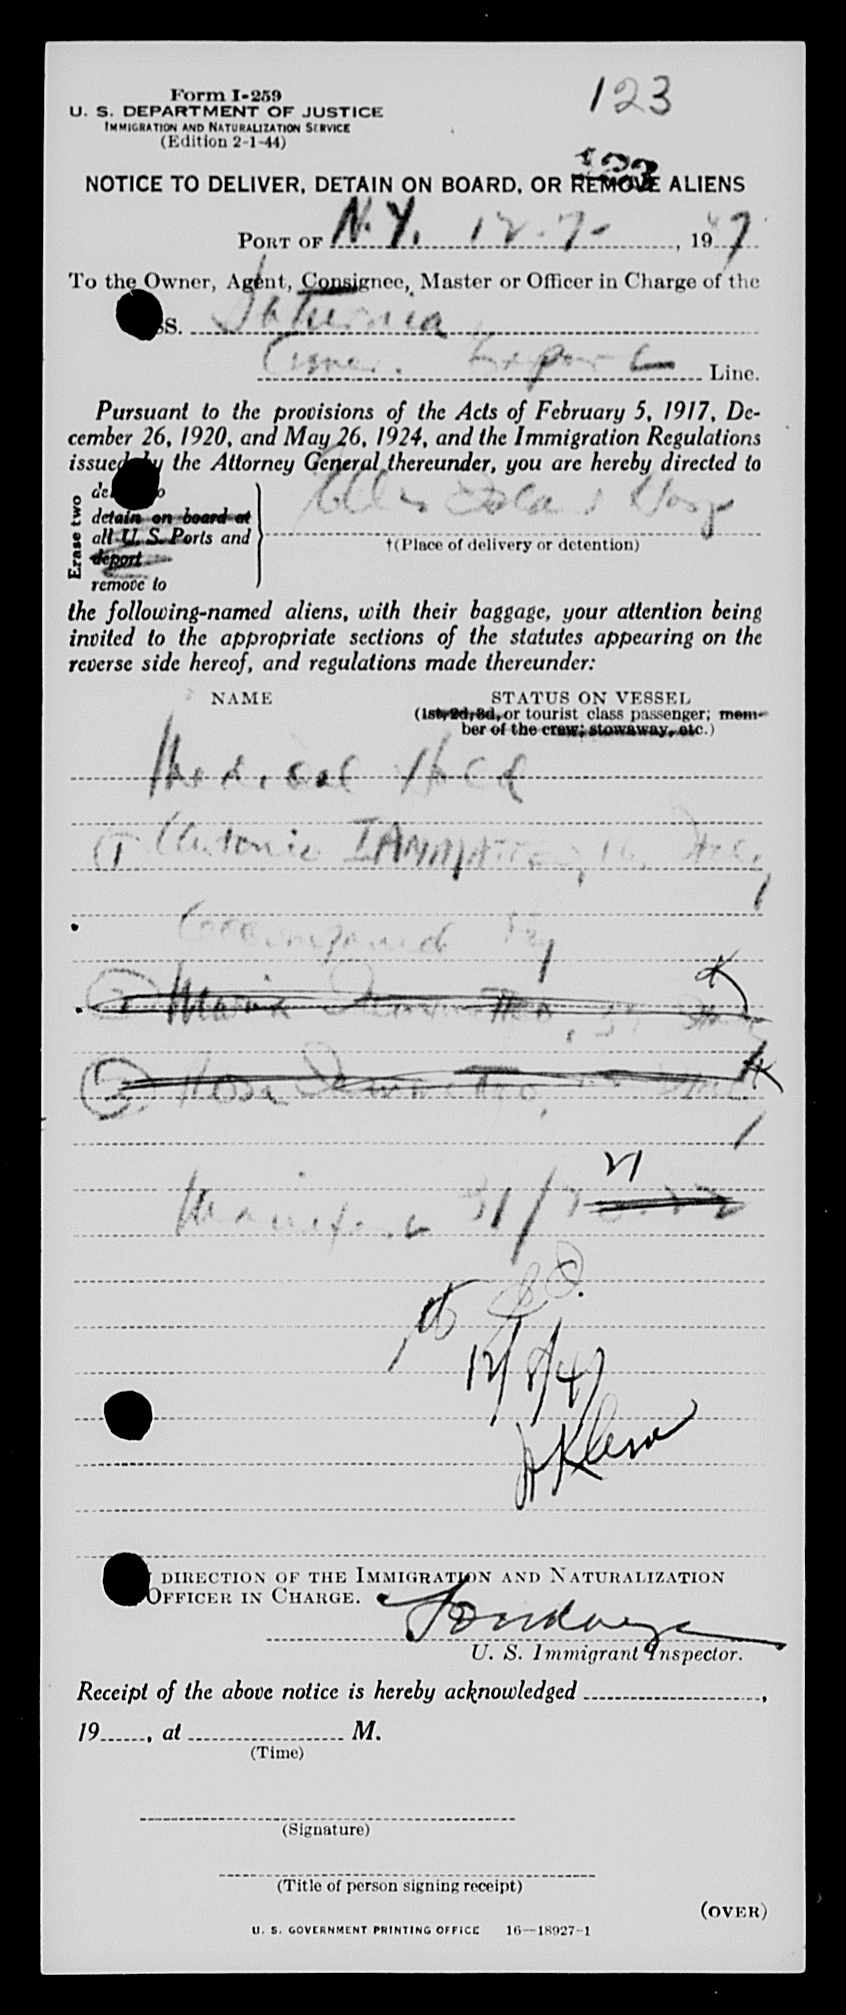 Form I-259
123
U. S. DEPARTMENT OF JUSTICE
IMMIGRATION AND NATURALIZATION SERVICE
(Edition 2-1-44)
123
NOTICE TO DELIVER, DETAIN ON BOARD, OR REMOVE ALIENS
PORT OF N.Y. 12-7-, 1947
To the Owner, Agent, Consignee, Master or Officer in Charge of the
SS. Saturnia
Amer. Export Line.
Pursuant to the provisions of the Acts of February 5, 1917, De-
cember 26, 1920, and May 26, 1924, and the Immigration Regulations
issued by the Attorney General thereunder, you are hereby directed to
Erase two
detain on board at
all U. S. Ports and
deport
remove to
Ellis Island Hosp
†(Place of delivery or detention)
the following-named aliens, with their baggage, your attention being
invited to the appropriate sections of the statutes appearing on the
reverse side hereof, and regulations made thereunder:
NAME STATUS ON VESSEL
(1st, 2d, 3d, or tourist class passenger; mem-
ber of the crew; stowaway, etc.)
Medical Hold
① Antonio 16
Accompanied by
② Maria
③ Rosa
Manifest 31/ 21
12/8/47
DIRECTION OF THE IMMIGRATION AND NATURALIZATION
OFFICER IN CHARGE.
U. S. Immigrant Inspector.
Receipt of the above notice is hereby acknowledged ,
19 , at M.
(Time)
(Signature)
(Title of person signing receipt)
(OVER)
U. S. GOVERNMENT PRINTING OFFICE 16—18927-1